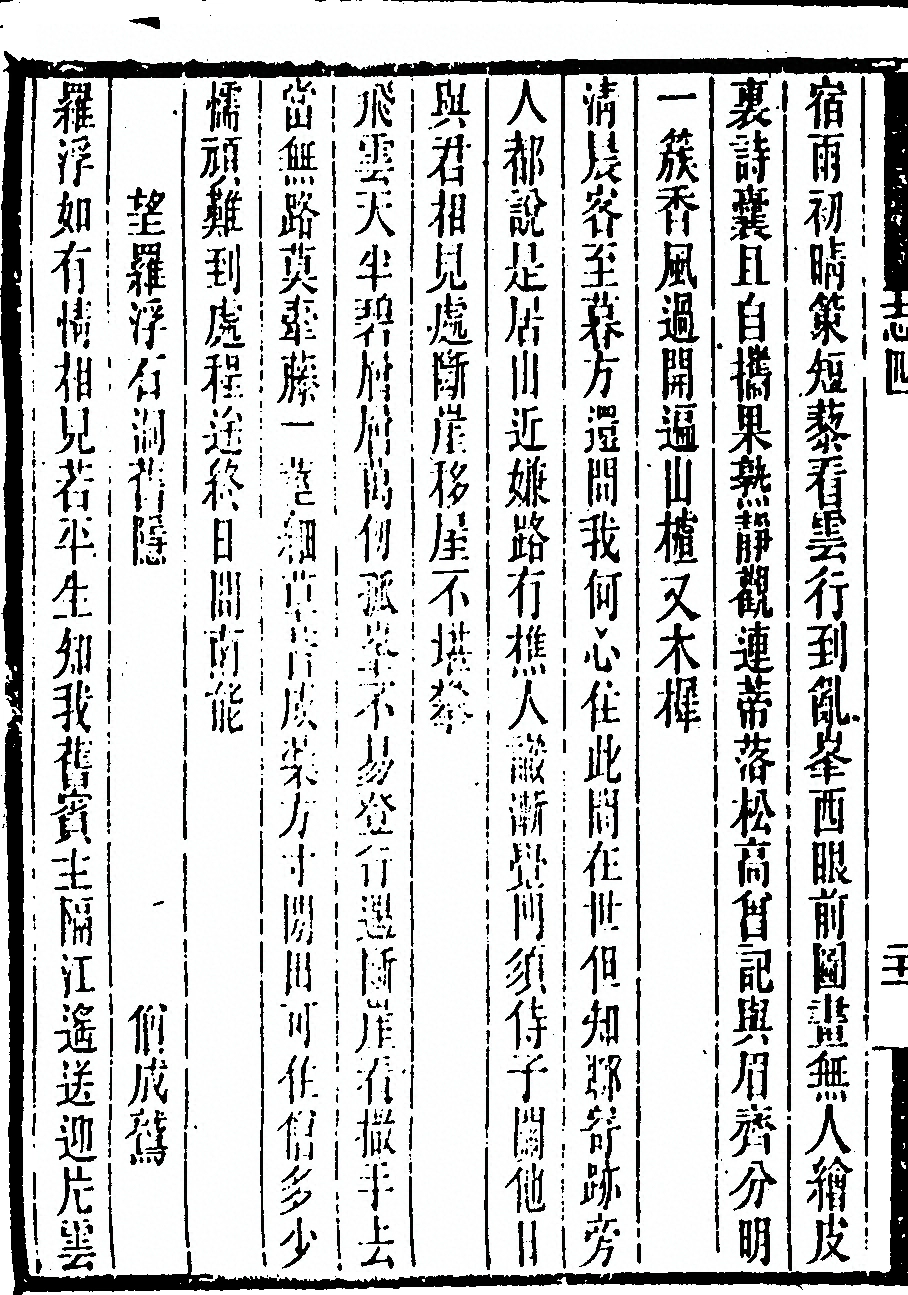 宿雨初晴策短藜看雲行到亂峯西眼前圖畫無人繪皮
裏詩囊且自攜果熟靜觀連蒂落松高曾記與眉齊分明
一簇香風過開遍山樝又木樨
清晨客至暮方還問我何心住此間在世但知聊寄跡旁
人都說是居山近嫌路有樵人識漸覺門須侍子關他日
與君相見處斷崖移屋不堪攀
飛雲天半碧層層萬仞孤峯不易登行遇斷崖看撒手去
當無路莫牽藤一莖細草皆成築方寸閒田可住僧多少
懦頑難到處程途終日問南能
望羅浮石洞舊隱 僧成鷲
羅浮如有情相見若平生知我舊賓主隔江遙送迎片雲
志四
二十